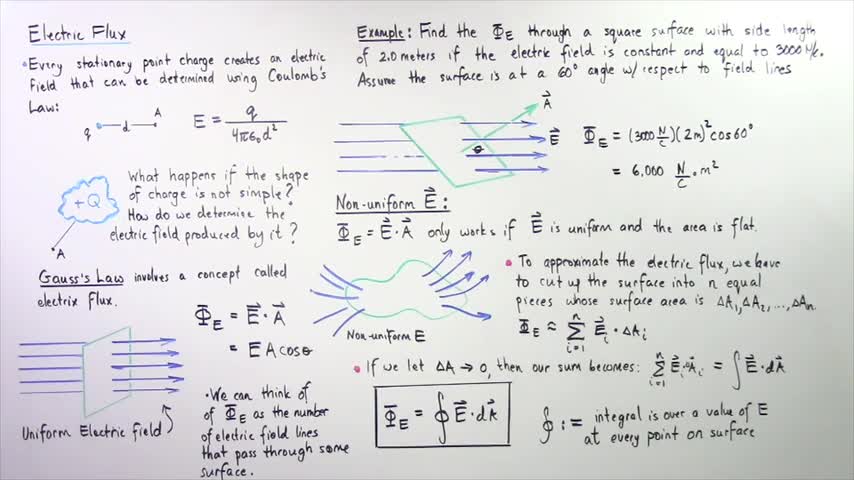 Electric Flux
•Every stationary point charge creates an electric
field that can be determined using Coulomb's
Law:
q d A
E = q / 4πε₀d²
What happens if the shape
of charge is not simple?
How do we determine the
electric field produced by it?
+Q
A
Gauss's Law involves a concept called
electrix flux.
Φ_E = E⃗ · A⃗
= E A cosθ
Uniform Electric field
•We can think of
of Φ_E as the number
of electric field lines
that pass through some
surface.
Example: Find the Φ_E through a square surface with side length
of 2.0 meters if the electric field is constant and equal to 3000 N/C.
Assume the surface is at a 60° angle w/ respect to field lines
A⃗
θ
E⃗
Φ_E = (3000 N/C)(2m)² cos60°
= 6,000 N/C · m²
Non-uniform E⃗:
Φ_E = E⃗ · A⃗ only works if E⃗ is uniform and the area is flat.
Non-uniform E
• To approximate the electric flux, we have
to cut up the surface into n equal
pieces whose surface area is ΔA₁, ΔA₂, ..., ΔAn.
Φ_E ≈ Σ_{i=1}^{n} E⃗ᵢ · ΔAᵢ
• If we let ΔA → 0, then our sum becomes: Σ_{i=1}^{n} E⃗ᵢ · A⃗ᵢ = ∫ E⃗ · dA⃗
Φ_E = ∮ E⃗ · dA⃗
∮ := integral is over a value of E
at every point on surface